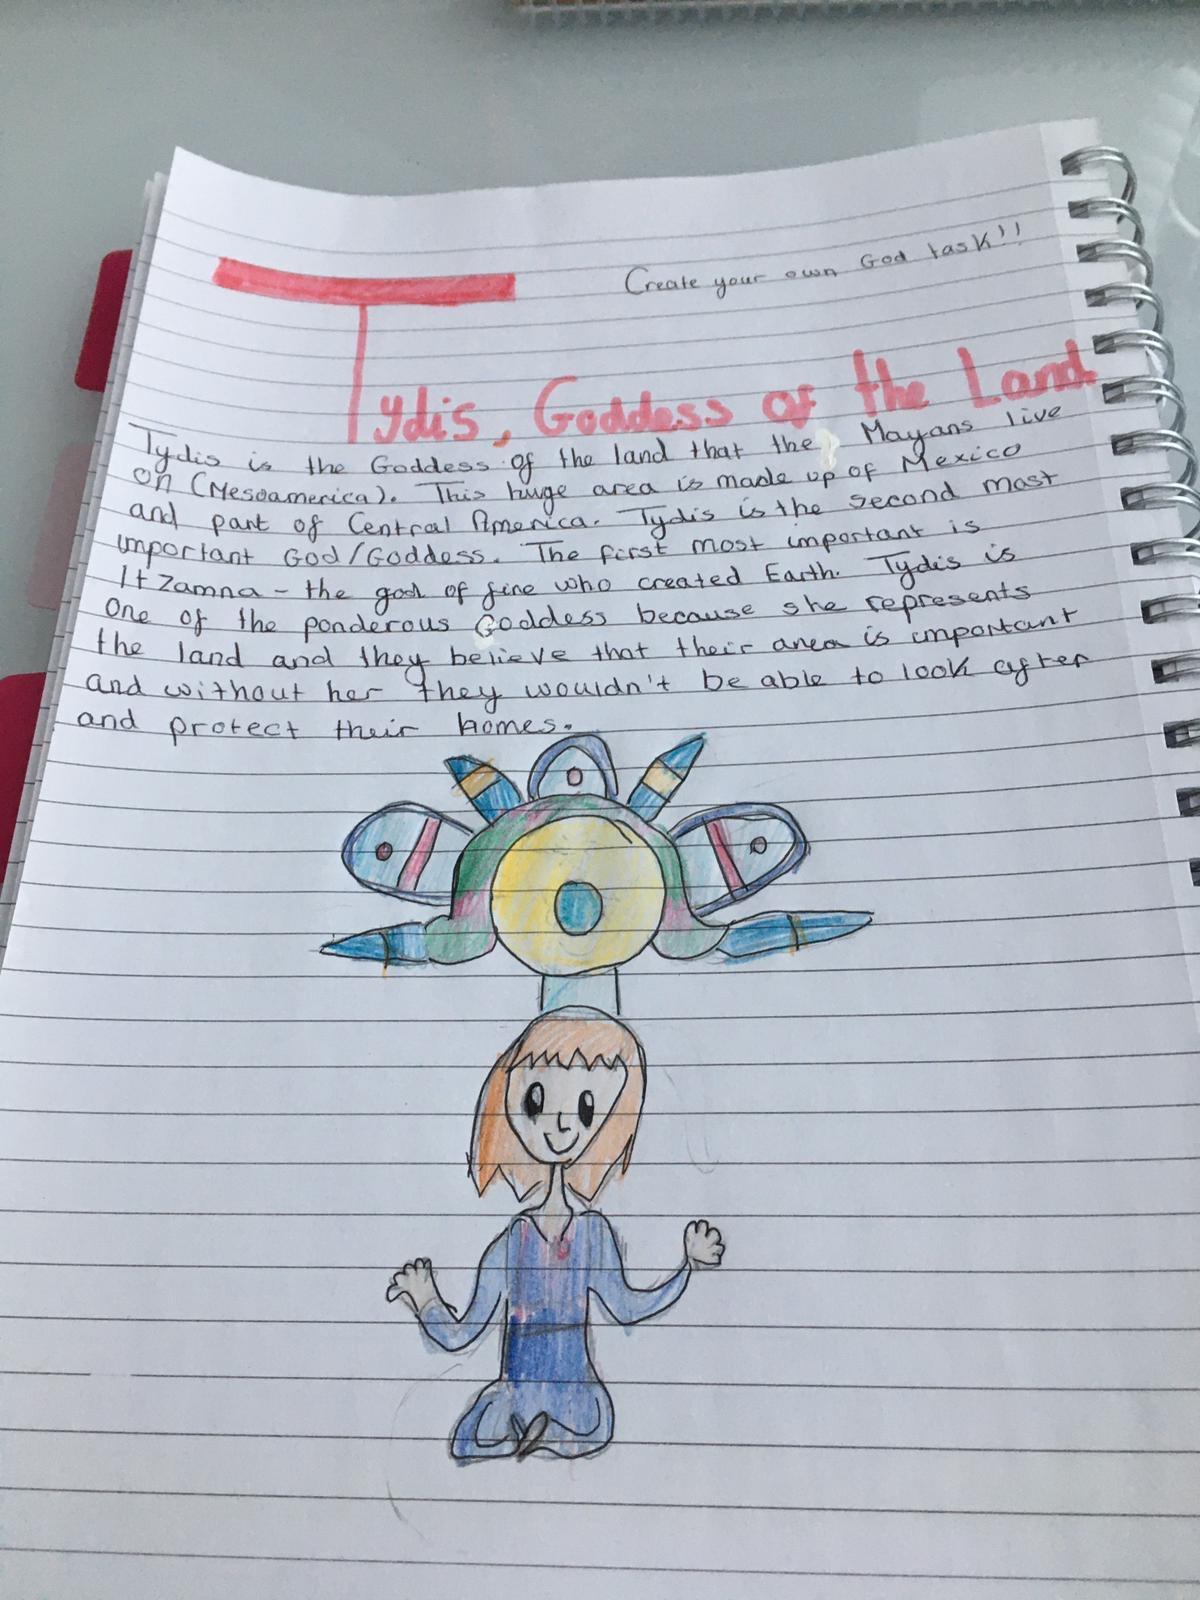 Create your own God task!!
Tydis, Goddess of the Land
Tydis is the Goddess of the land that the Mayans live
on (Mesoamerica). This huge area is made up of Mexico
and part of Central America. Tydis is the second most
important God/Goddess. The first most important is
Itzamna - the god of fire who created Earth. Tydis is
one of the ponderous Goddess because she represents
the land and they believe that their area is important
and without her they wouldn't be able to look after
and protect their homes.